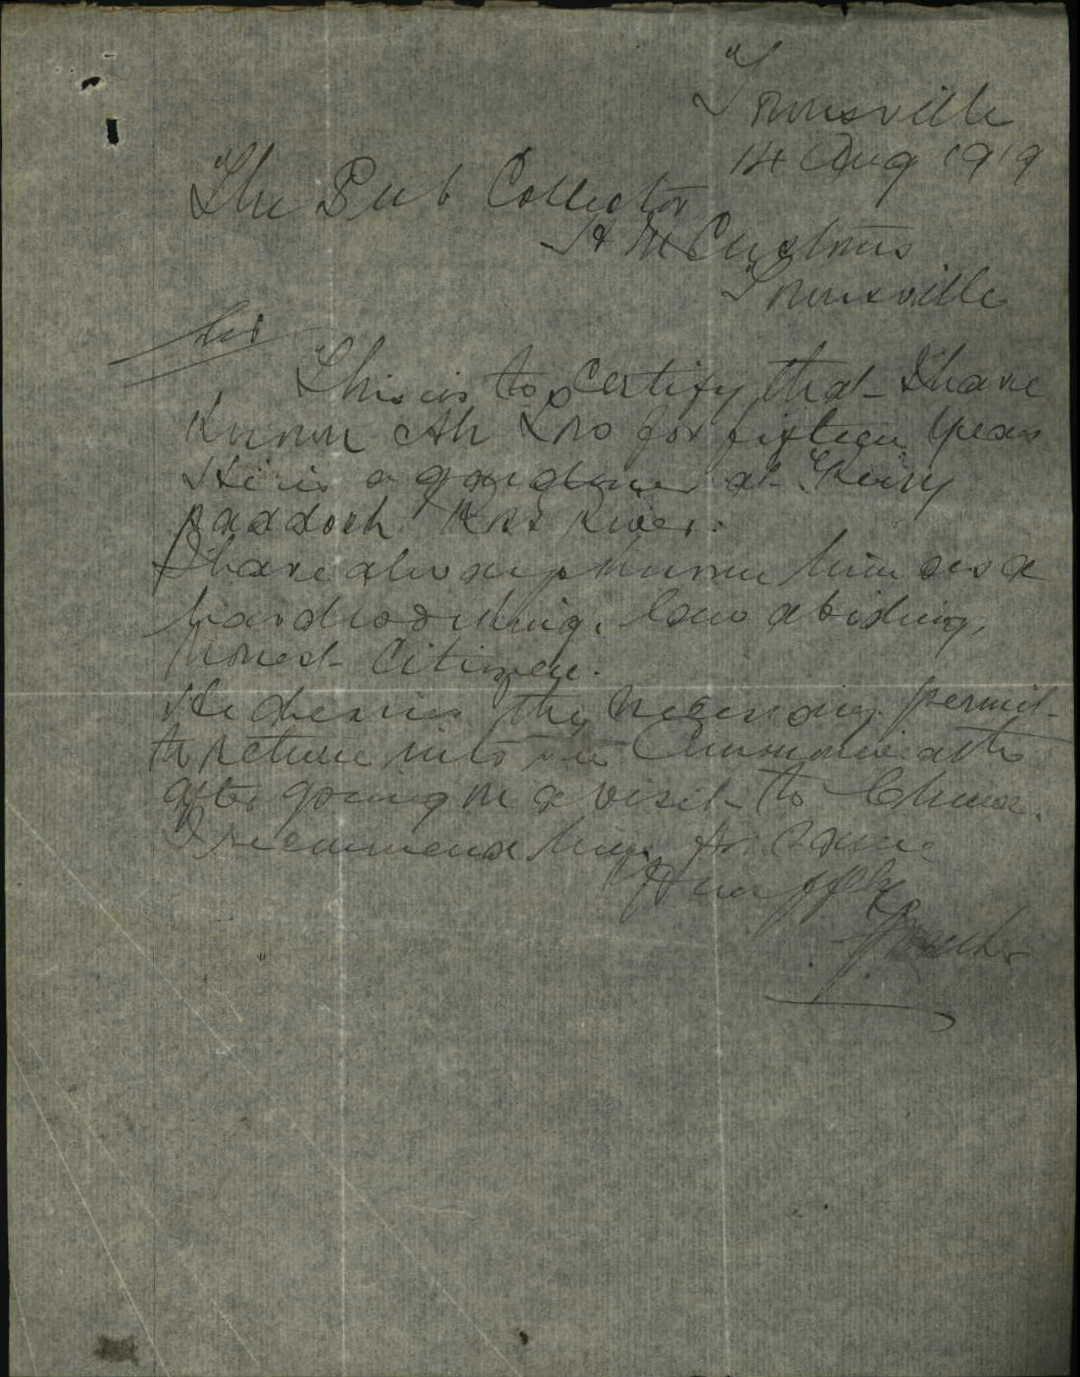 Townsville
14 Aug 1919
The Sub Collector
H M Customs
Townsville
Sir
This is to certify that I have
known Ah Loo for fifteen years
He is a gardener at
paddock Ross River.
I have always known him as a
hardworking, law abiding,
honest Citizen.
He desires the necessary permit
to return into the Commonwealth
after going on a visit to China.
I recommend him for same